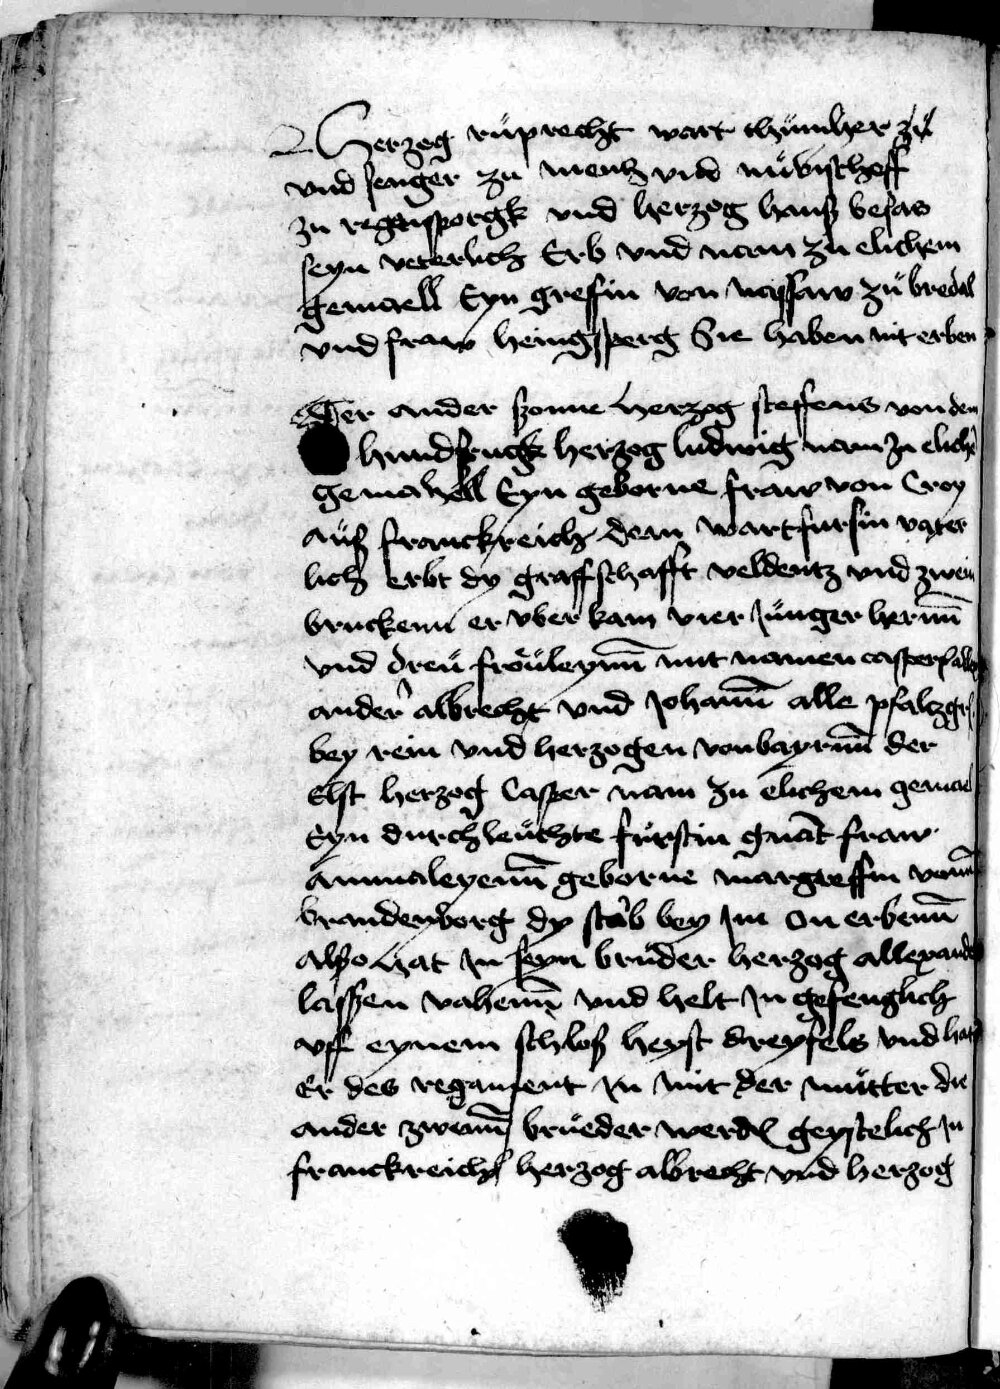 Herzog rüprecht wart thümher zü
vnd senger zu mentz vnd nü bischeff
zu regenssporgk vnd herzog hanß besas
seyn veterlich Erb vnd nam zu elichem
gemaell Eyn greffin von nassaw zü bredal
vnd fraw heingssperg Sie haben nit erben
Der ander szonne herzog steffens von dem
hundsruck herzog ludwig nam zu eliche
gemahell Eyn geborne fraw von Croy
auß franckreich dem wart fur sin vater
lich erbt dy graffschafft veldentz vnd zwein
bruckenn er vber kam vier Junger hernn
vnd dreü fröüleynn mit namen casper alle
ander albrecht vnd Johann alle pfalzgr
bey rein vnd herzogen von bayrnn der
Elst herzog Casper nam zu elichem gemael
Eyn durchleüchte fürstin gnat fraw
Ammaleyenn geborne margreffin vonn
brandenborg dy starb bey Im on erbenn
also hat In seyn bruder herzog allexander
lasszen vahenn vnd helt In gefenglich
vff eynem schloß heyst dreyfels vnd hat
Er des regament In mit der mütter die
ander zwenn brüeder werden geystelich In
franckreich herzog albrecht vnd herzog